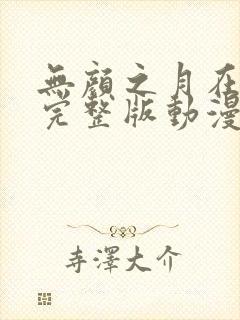 無顏之月在
完整版動漫
寺澤大介